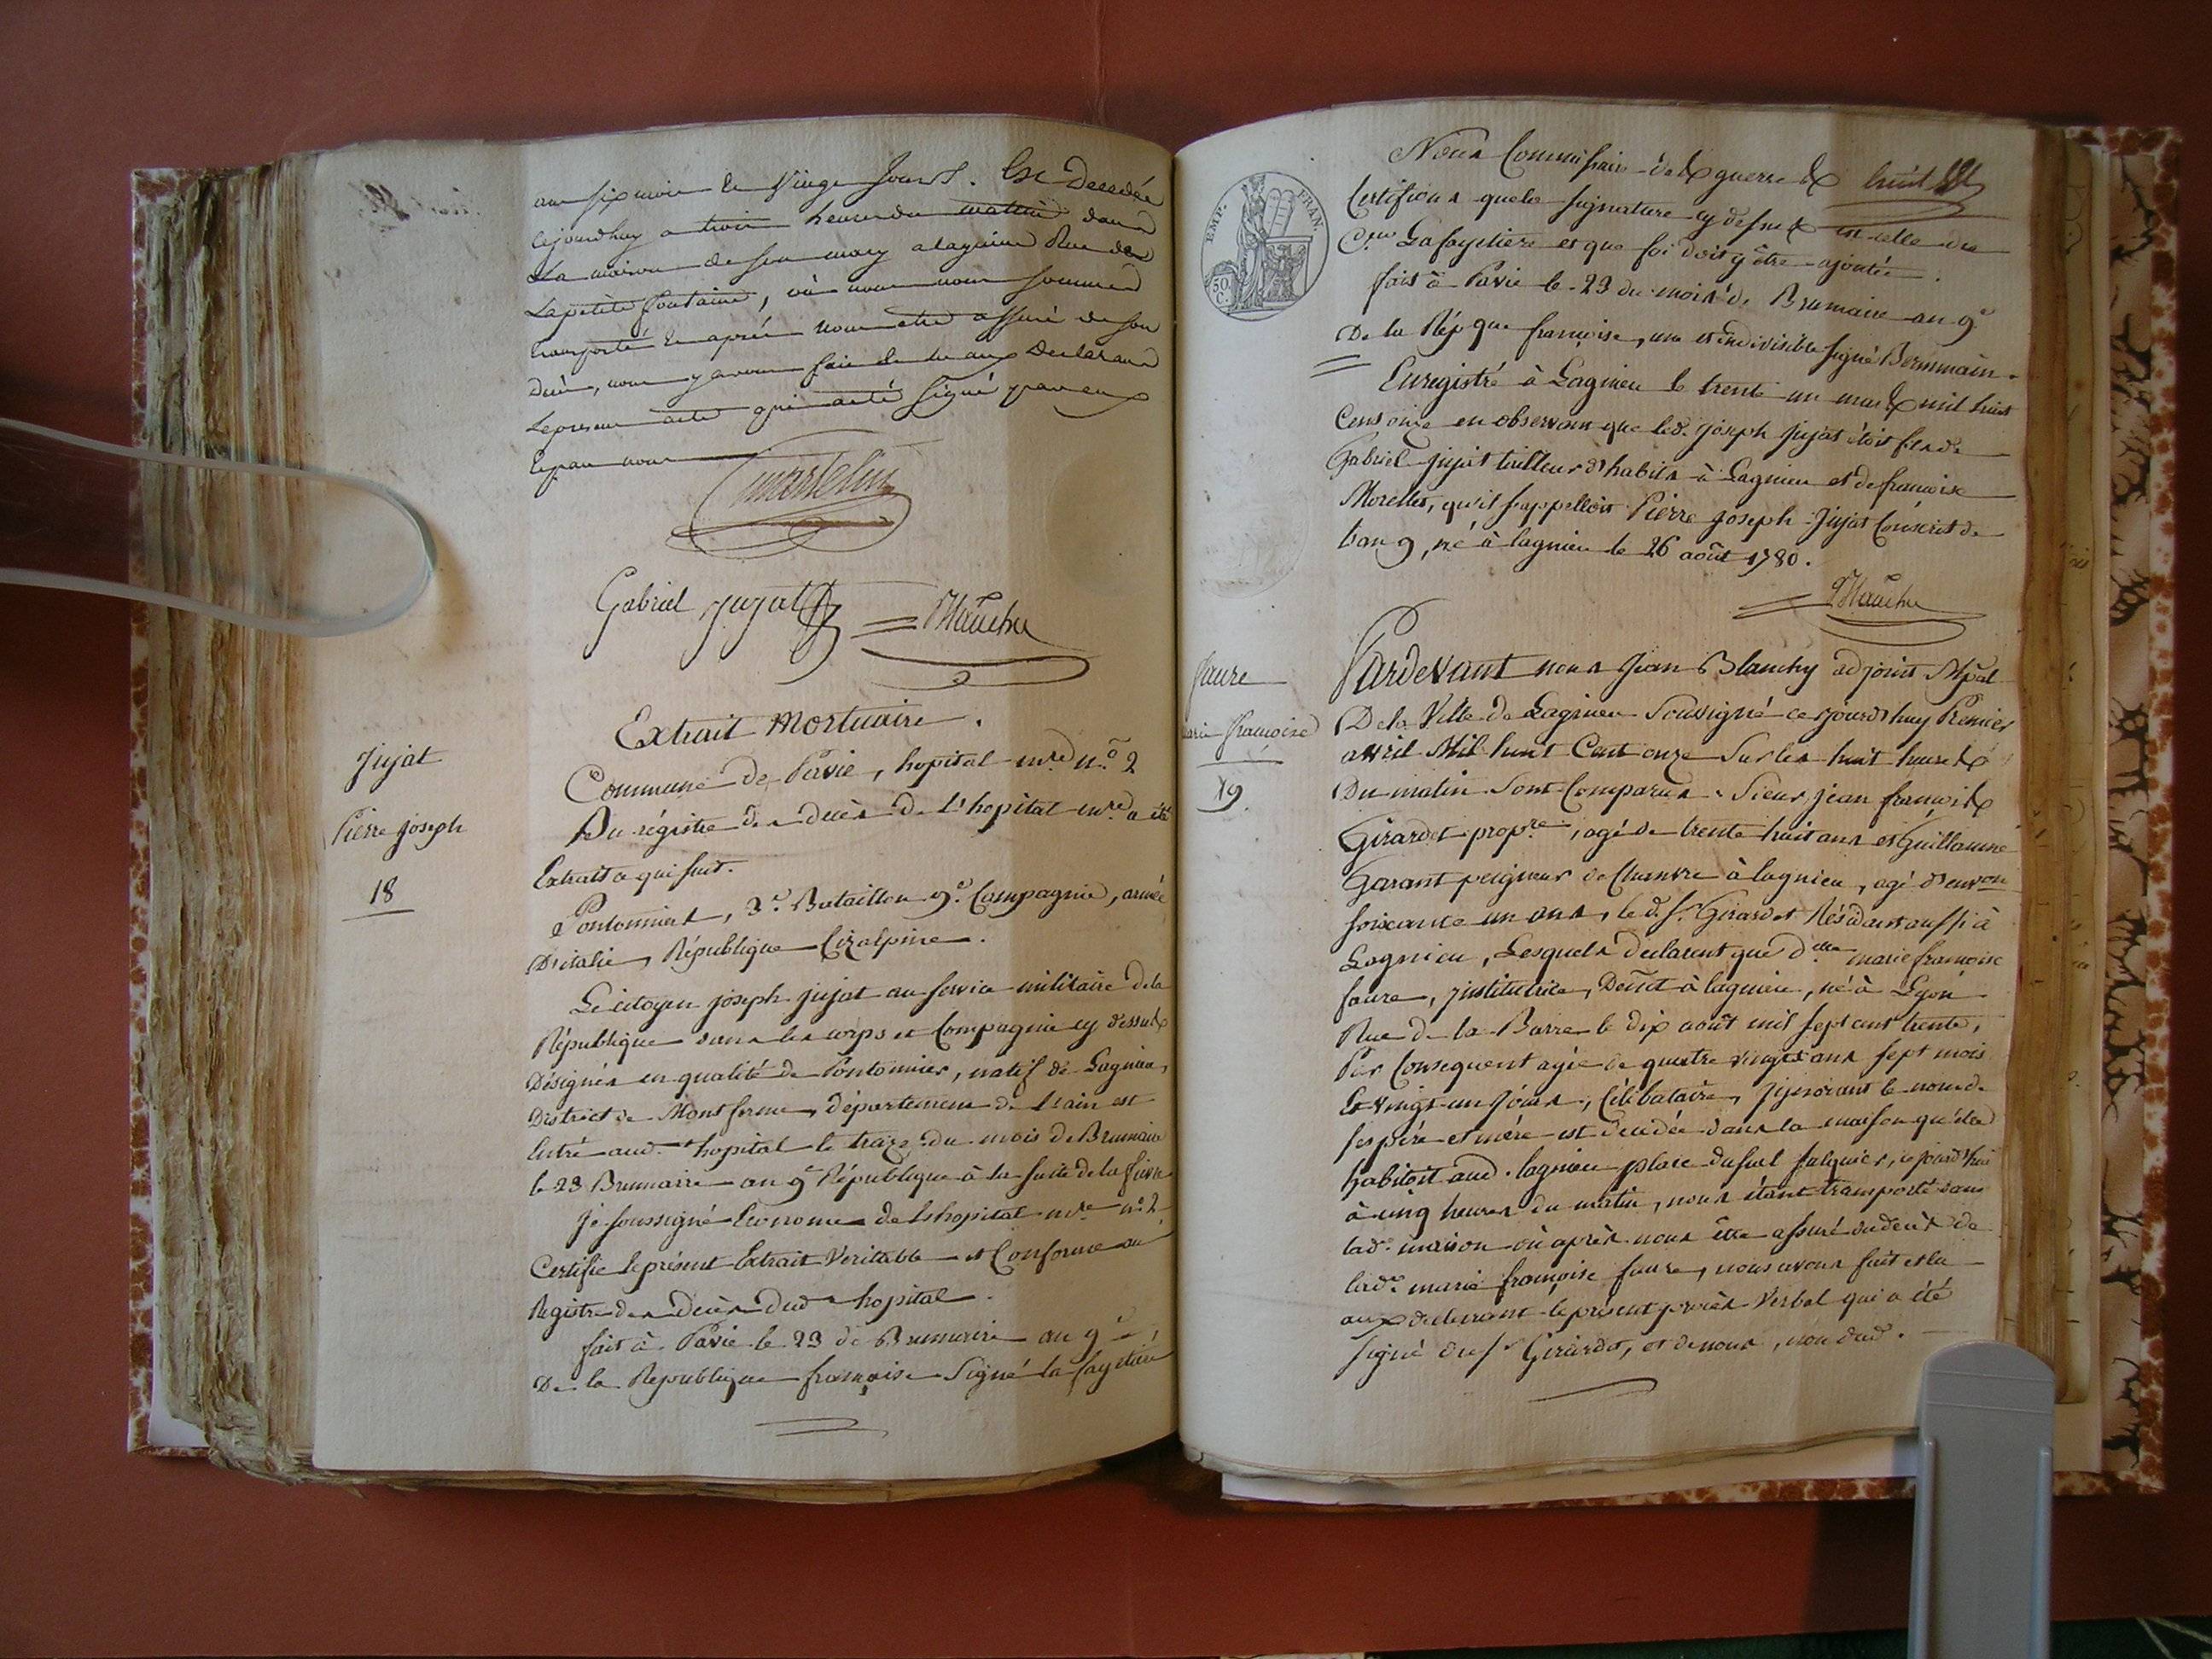 ans six mois et vingt Jours. Est Decedée
cejourdhuy a trois heures du matin dans
La maison de son mary a lagnieu Rue de
La petite fontaine, où nous nous sommes
transporté et après nous etre assuré de son
Decès, nous y avons fait et lu aux Declarans
Le present acte qui a eté signé par eux
et par nous
martelin
Gabriel Jujat Blanchy
Extrait Mortuaire.
Jujat
Pierre joseph
18
Commune de Pavie, hopital mre n.o 2
Du régistre des decès de l'hopital mre a été
Extrait ce qui suit.
Pontonniers, 3e. Bataillon 9e. Compagnie, armée
D'italie, République Cizalpine.
Le citoyen joseph jujat au service militaire de la
République dans les corps et Compagnie cy dessus
Désignés en qualité de Pontonnier, natif de Lagnieu,
District de Montferme, département de l'ain est
Entré aud. hopital le treize du mois de Brumaire
le 23 Brumaire an 9e République à la suite de la fievre
Je soussigné Econome de l'hopital mre n.o 2
Certifie le présent Extrait Veritable et Conforme au
Registre des decès dud. hopital.
fait à Pavie le 23 de Brumaire an 9e
De la Republique françoise Signé la fayetiere
EMP. FRAN.
50 C.
Nous Commissaire des guerres
Certifions que la signature cy dessus est celle du
Cen Lafayetiere et que foi doit y être ajoutée.
fait à Pavie le 23 du mois de Brumaire an 9e
De la Répque françoise, une et indivisible signé
Enregistré à Lagnieu le trente un mars mil huit
Cens onze en observant que led. joseph jujat étoit fils de
Gabriel jujat tailleur d'habits à Lagnieu et de françoise
Morellet, qu'il s'appelloit Pierre joseph Jujat Conscrit de
l'an 9, né à lagnieu le 26 août 1780.
Blanchy
faure
marie françoise
19.
Pardevant nous Jean Blanchy adjoint Mpal
De la Ville de Lagnieu Soussigné ce jourd'huy Premier
avril Mil huit Cent onze Sur les huit heures
Du matin Sont Comparus Sieur jean françois
Girardet propre, agé de trente huit ans et Guillaume
Garant peigneur de Chanvre à lagnieu, agé d'envon
soixante un ans, le d. sr. Girardet Résidant aussi à
Lagnieu, Lesquels declarent que delle marie françoise
faure, jnstitutrice, Demt à lagnieu, né à Lyon
Rue de la Barre le dix août mil sept cent trente,
Par Consequent agée de quatre vingts ans sept mois
Et vingt un jours, Célibataire, jgnorant le nom de
ses père et mère est decedée dans la maison qu'elle
habitoit aud. lagnieu place du ce jourd'hui
à cinq heures du matin, nous étant transporté dans
lade. maison où après nous être assuré du decès de
lade. marie françoise faure, nous avons fait et lu
aux declarant le présent procès Verbal qui a été
signé du sr Girardet, et de nous, non dud.